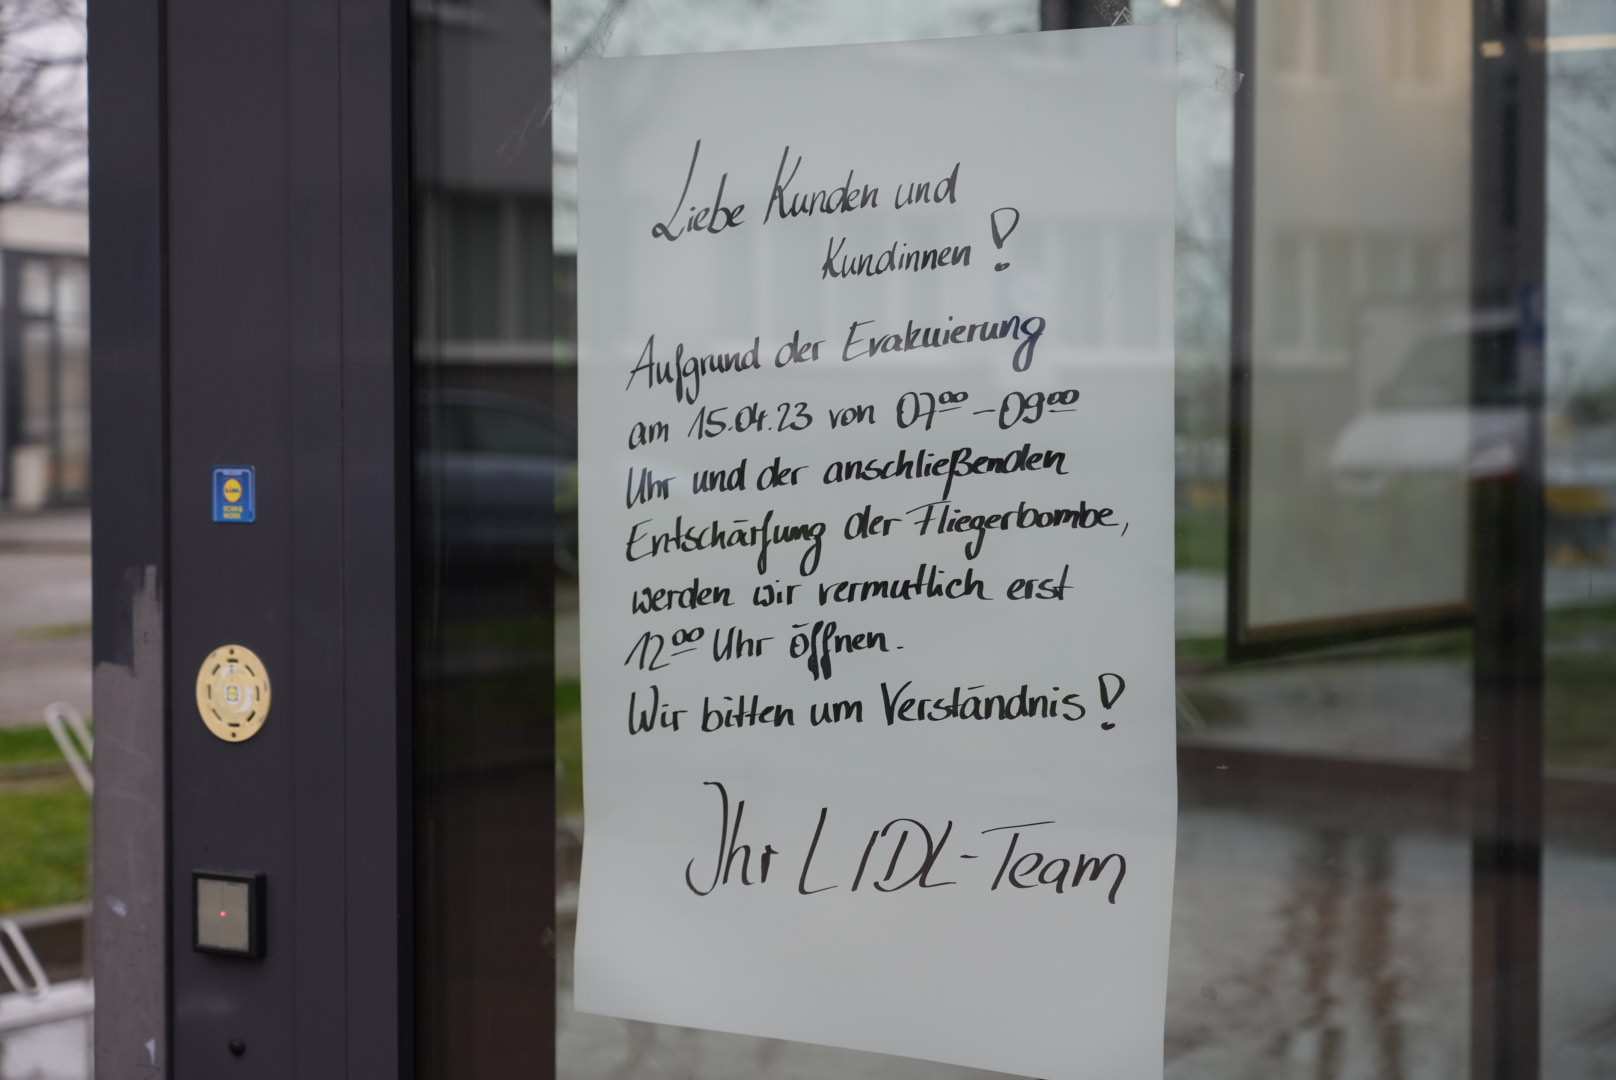 Liebe Kunden und
Kundinnen!
Aufgrund der Evakuierung
am 15.04.23 von 07⁰⁰-09⁰⁰
Uhr und der anschließenden
Entschärfung der Fliegerbombe,
werden wir vermutlich erst
12⁰⁰ Uhr öffnen.
Wir bitten um Verständnis!
Ihr LIDL-Team